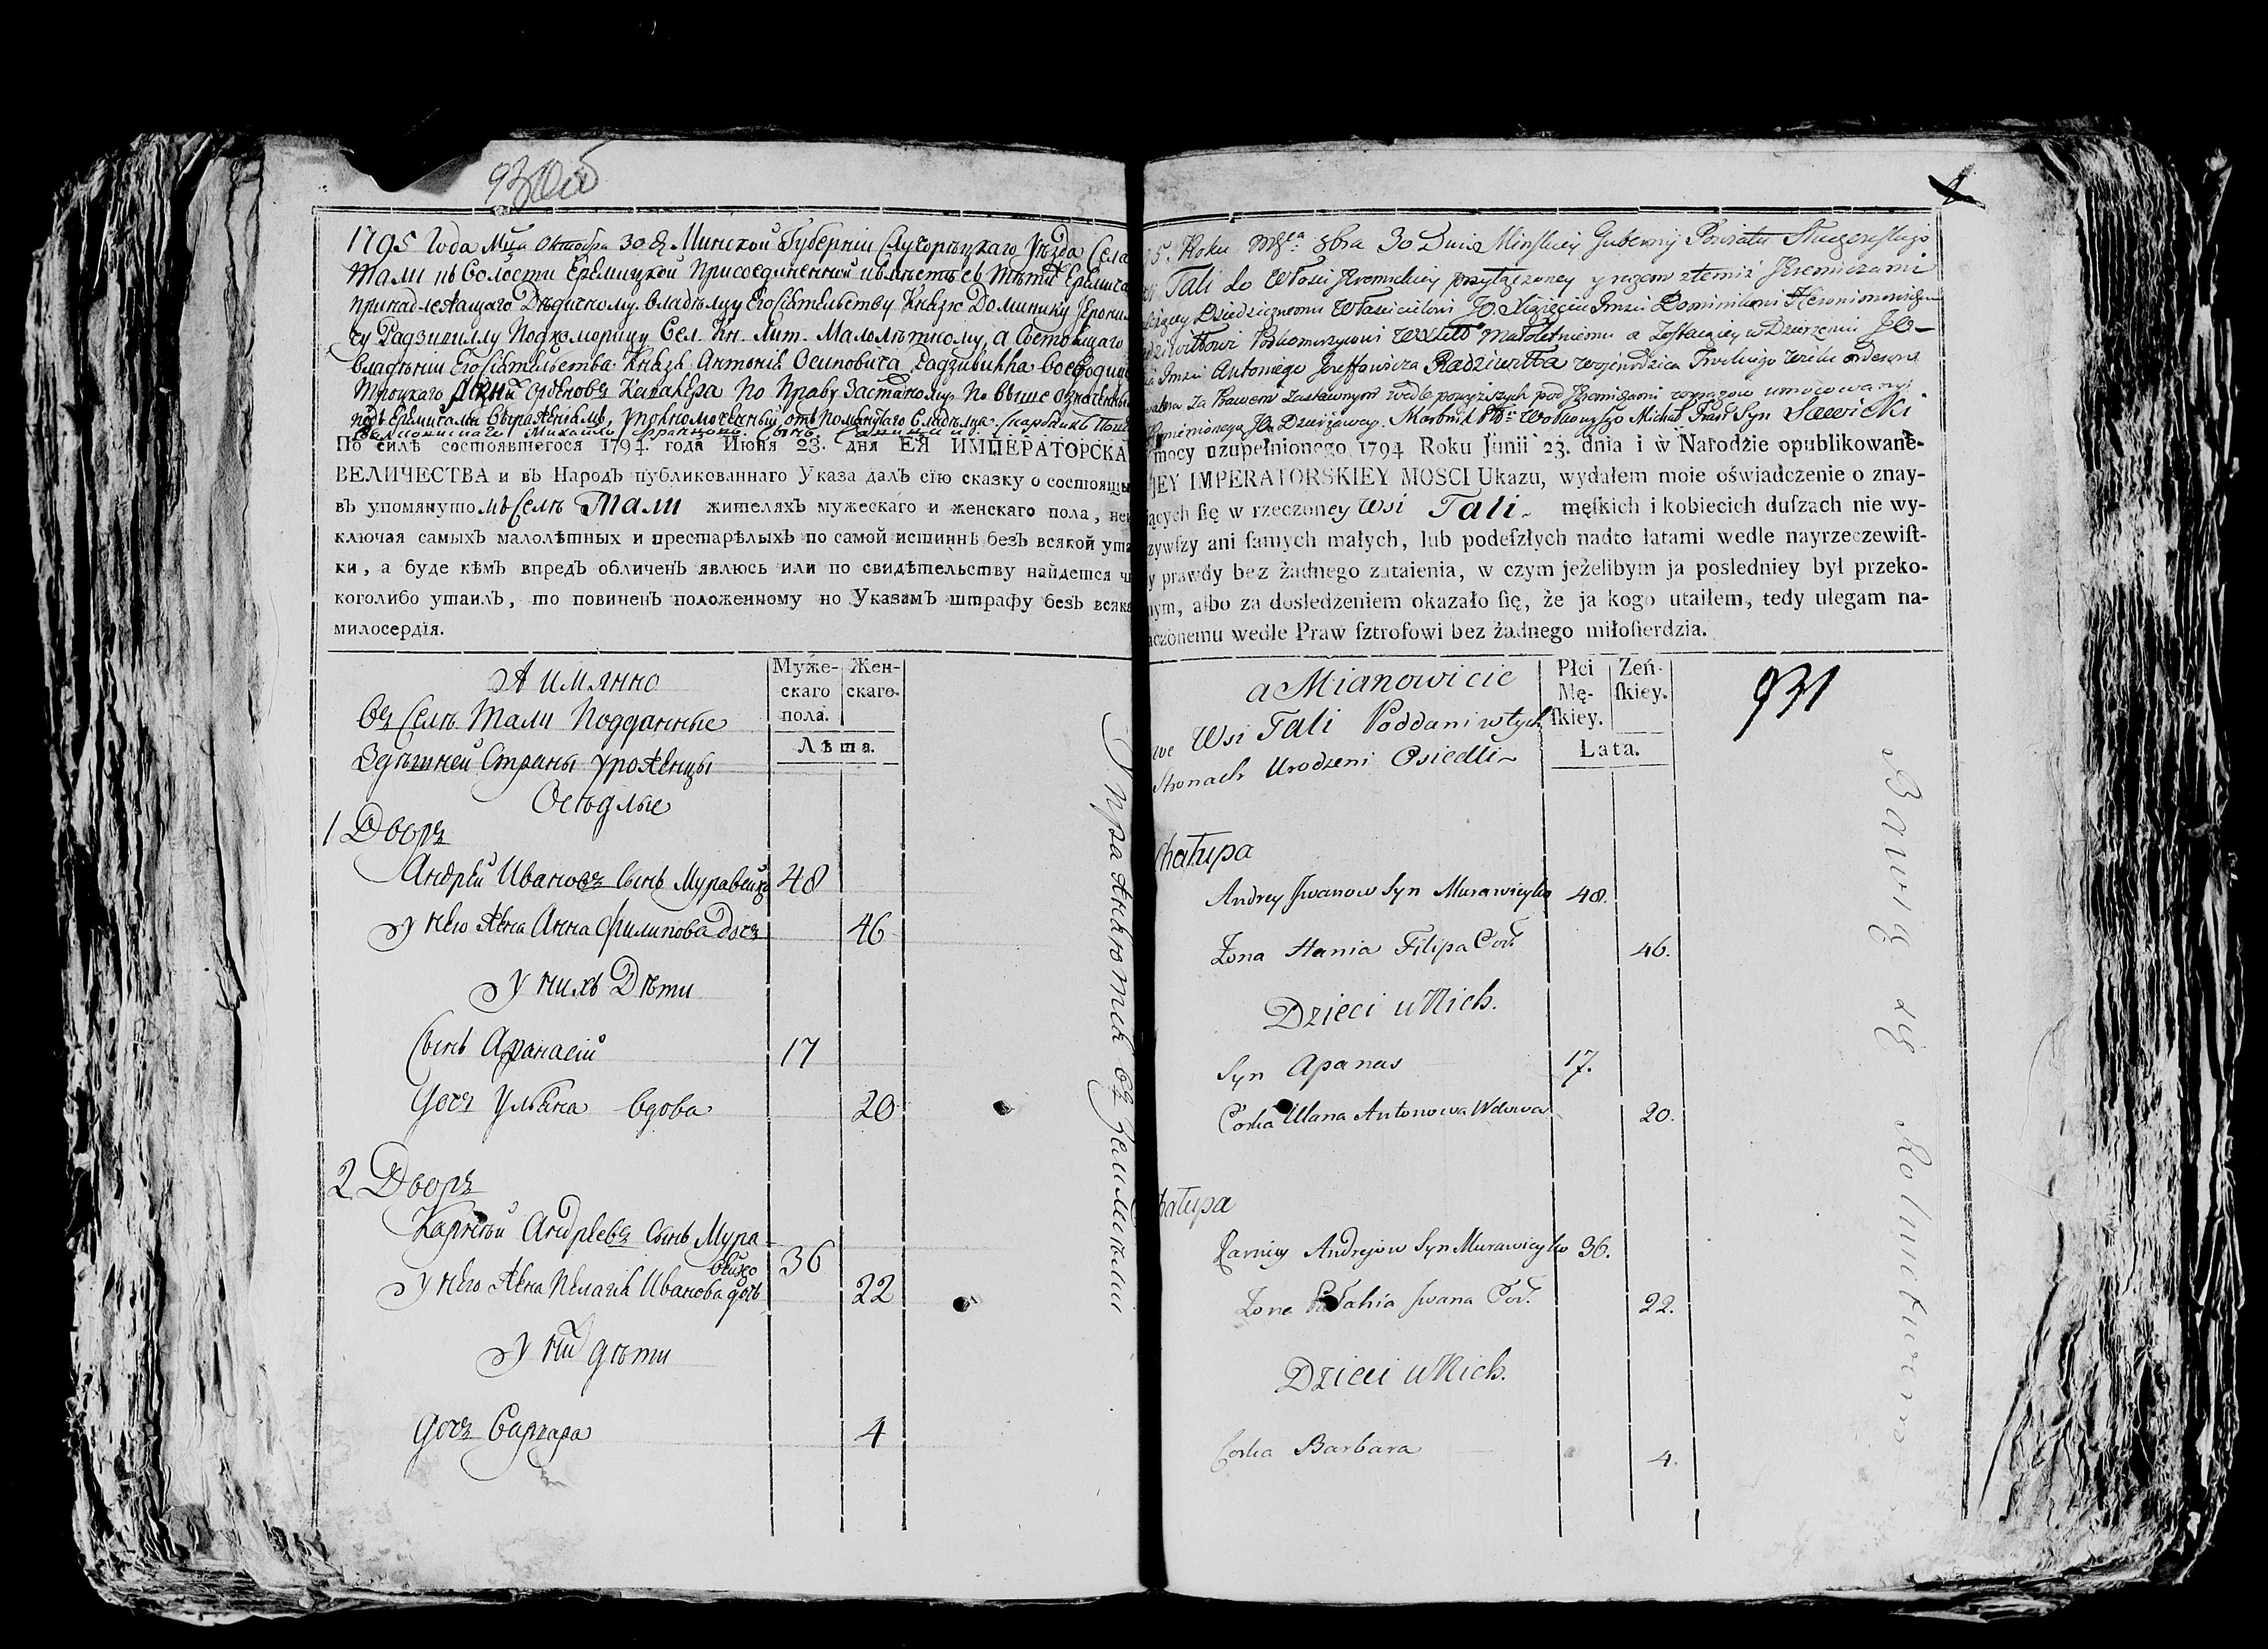 930об
1795 Года Мца Октября 30 д Минской Губерніи Слуцорѣцкаго Уѣзда Села
Тали въ Волости Еремицкой Присоединенной
принадлежащаго Дѣдичному владѣльцу Его Сіятельству Князю Доминику Іерони
чу Радзивиллу Подкоморицу Вел. Кн. Лит. Малолѣтному, а Состоящаго
владѣніи Его Сіятельства Князя Антонія Осиповича Радзивилла воеводи
Троцкаго Орденовъ Кавалера По Праву Заставному По выше означенны
подъ Еремичами Выраженіямъ, Уполномоченный отъ Помянутаго Владѣльца
Михайло Францовъ Сынъ
По силѣ состоявшегося 1794. года Июня 23. дня ЕЯ ИМПЕРАТОРСКА
ВЕЛИЧЕСТВА и въ Народъ публикованнаго Указа далъ сію сказку о состоящы
въ упомянутомъ Селѣ Тали жителяхъ мужескаго и женскаго пола, неи
ключая самыхъ малолѣтных и престарѣлыхъ по самой истиннѣ безъ всякой ута
ки, а буде кѣмъ впредъ обличенъ явлюсь или по свидѣтельству найдется ч
коголибо утаилъ, то повиненъ положенному по Указамъ штрафу безъ всяка
милосердія.
А имянно
Въ Селѣ Тали Подданные
Здѣшней Страны Уроженцы
Осѣдлые
Муже-
скаго
пола.
Жен-
скаго.
Лѣта.
1 Дворъ
Андрей Ивановъ Сынъ Муравейко 48
У него Жена Анна Филипова дочъ 46
У нихъ Дѣти
Сынъ Афанасій 17
Дочъ Ульяна Вдова 20
2 Дворъ
Карнѣй Андреевъ Сынъ Мура
вейко 36
У него Жена Пелагія Иванова дочь 22
У ни дѣти
Дочъ Варвара 4
5. Roku 8bra 30 Dnia Minskiey Gubernij Powiatu Słucoreskiego
Tali do Włosci Jeremickiey przyłączoney y razem z temiż Jeremiczami
Dziedzicznemu Włascicielowi JO. Xiążęciu Imci Dominikowi Hieronimowiczu
dziwiłłowi Podkomorzycowi WXLitto Małoletniemu a Zostaiącey w Dzierżeniu JO
Imci Antoniego Jozeffowicza Radziwiłła Woiewodzica Trockiego Orderow
walera Za Prawem Zastawnym wedle powyższych pod Jeremiczami wyrazow umocowany
Michał Fran Syn Sawicki
mocy uzupełnionego 1794 Roku Junii 23. dnia i w Narodzie opublikowane-
JEY IMPERATORSKIEY MOSCI Ukazu, wydałem moie oświadczenie o znay-
iących ſię w rzeczoney Wsi Tali męſkich i kobiecich duſzach nie wy-
zywſzy ani ſamych małych, lub podeſzłych nadto latami wedle nayrzeczewiſt-
y prawdy bez żadnego zataienia, w czym jeżelibym ja posledniey był przeko-
nym, albo za dosledzeniem okazało ſię, że ja kogo utaiłem, tedy ulegam na-
aczonemu wedle Praw ſztrofowi bez żadnego miłoſierdzia.
a Mianowicie
we Wsi Tali Poddani w tych
Stronach Urodzeni Osiedli
Płci
Mę-
ſkiey.
Zeń-
ſkiey.
Lata.
931
Chałupa
Andrey Jwanow Syn Murawieyko 48.
Żona Hania Filipa Cor. 46.
Dzieci u Nich.
Syn Apanas 17.
Corka Ulana Antonowa Wdowa 20.
hałupa
Karniey Andrejow Syn Murawieyko 36.
Żona Pałahia Jwana Cor. 22.
Dzieci u Nich.
Corka Barbara 4.